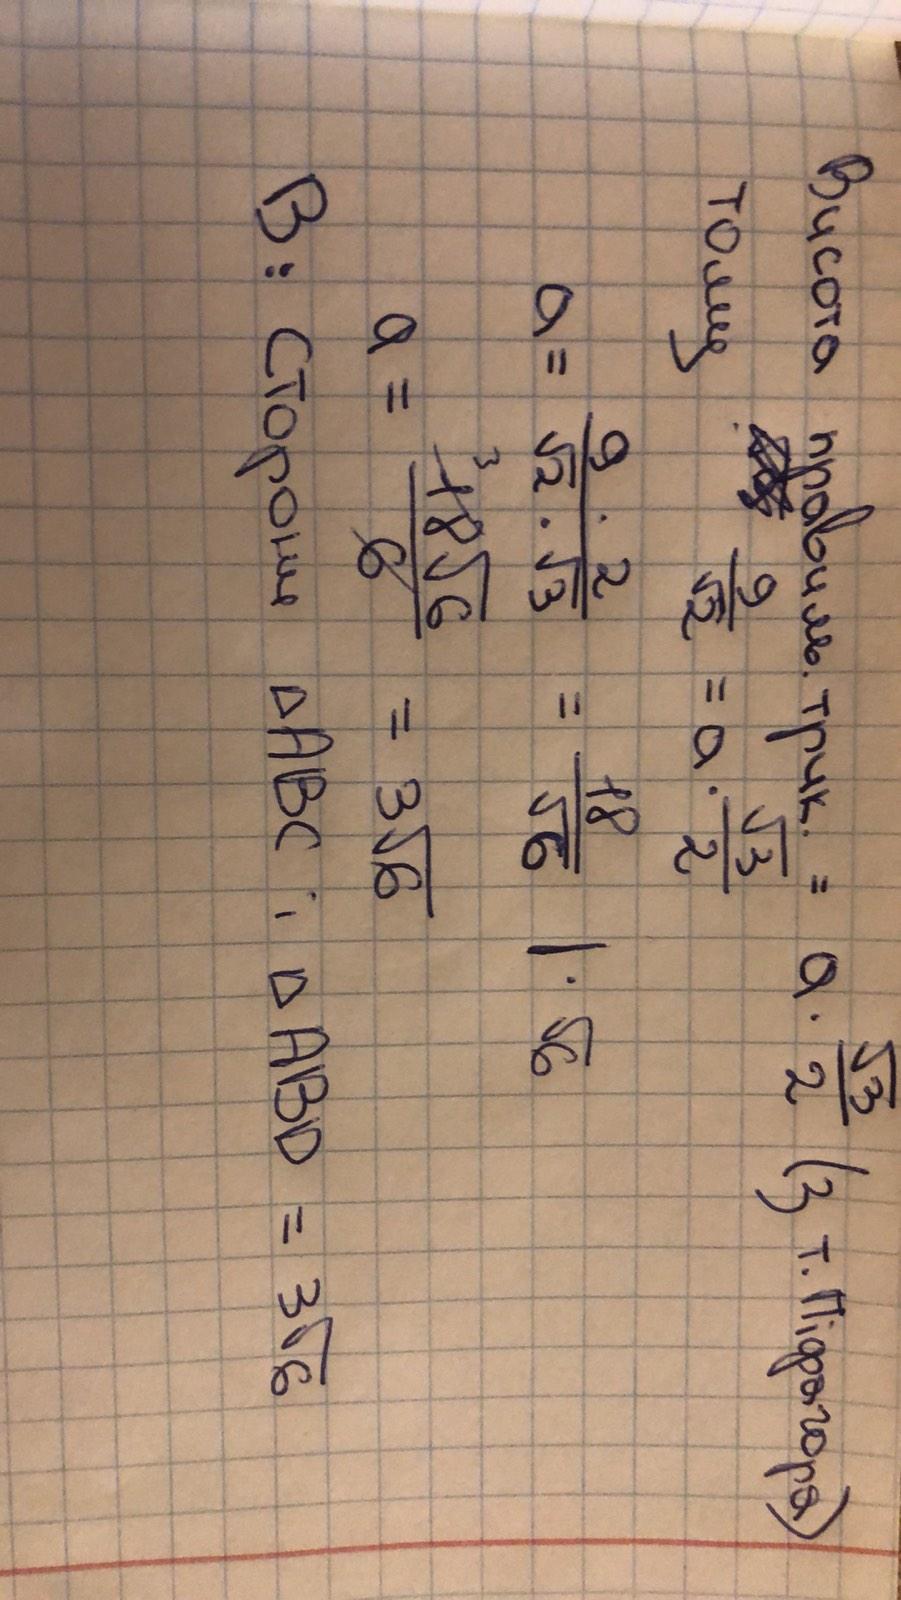 Висота правиль. трик. = a · √3/2 (з т. Піфагора)
тому 9/√2 = a · √3/2
a = 9 · 2/√2 · √3 = 18/√6 | · √6
a = 3 18√6/6 = 3√6
В: Сторони △ABC і △ABD = 3√6